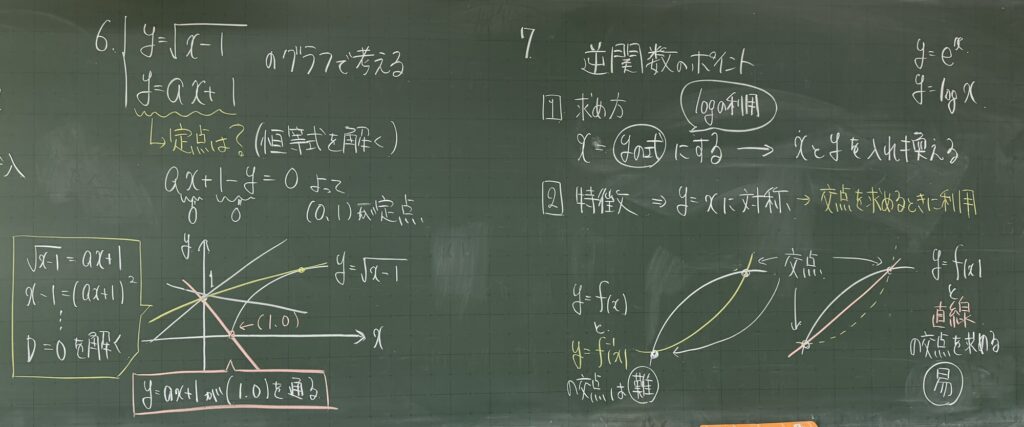 6. y=√x-1
y=ax+1
のグラフで考える
↳定点は?(恒等式を解く)
ax+1-y=0 よって
(0,1)が定点
√x-1=ax+1
x-1=(ax+1)²
⋮
D=0を解く
y
1
y=√x-1
←(1.0)
x
y=ax+1が(1.0)を通る
7 逆関数のポイント
y=eˣ
y=log x
1 求め方
logの利用
x=yの式にする → xとyを入れ換える
2 特徴 ⇒ y=xに対称 → 交点を求めるときに利用
y=f(x)
と
y=f⁻¹(x)
の交点は難
交点
y=f(x)
と
直線
の交点を求める
易